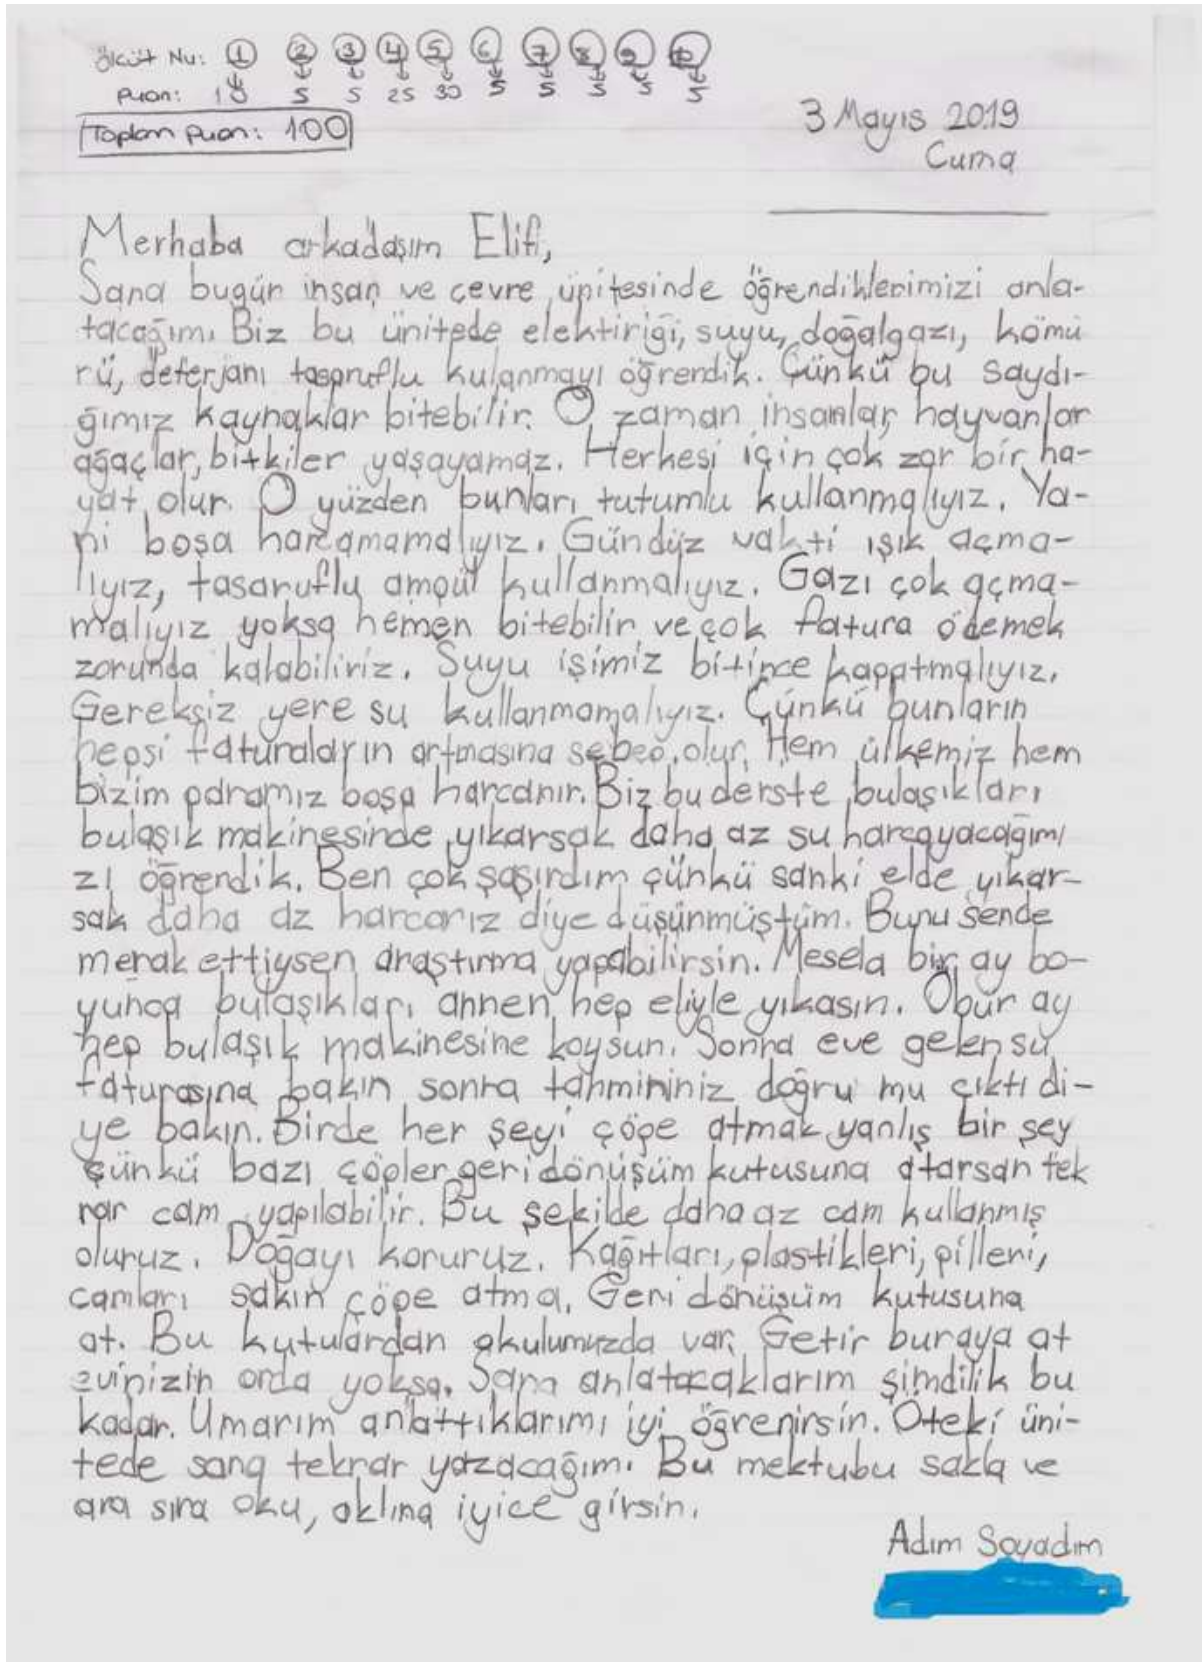 Ölçüt Nu: 1 2 3 4 5 6 7 8 9 10
Puan: 10 5 5 25 30 5 5 5 5 5
Toplam puan: 100
3 Mayıs 2019
Cuma
Merhaba arkadaşım Elif,
Sana bugün insan ve çevre ünitesinde öğrendiklerimizi anla-
tacağım. Biz bu ünitede elektiriği, suyu, doğalgazı, kömü
rü, deterjanı tasaruflu kulanmayı öğrendik. Çünkü bu saydı-
ğımız kaynaklar bitebilir. O zaman insanlar, hayvanlar
ağaçlar, bitkiler yaşayamaz. Herkesi için çok zor bir ha-
yat olur. O yüzden bunları tutumlu kullanmalıyız. Ya-
ni boşa harcamamalıyız. Gündüz vakti ışık açma-
lıyız, tasaruflu ampül kullanmalıyız. Gazı çok açma-
malıyız yoksa hemen bitebilir ve çok fatura ödemek
zorunda kalabiliriz. Suyu işimiz bitince kapatmalıyız.
Gereksiz yere su kullanmamalıyız. Çünkü bunların
hepsi faturaların artmasına sebep olur. Hem ülkemiz hem
bizim paramız boşa harcanır. Biz bu derste bulaşıkları
bulaşık makinesinde yıkarsak daha az su harcayacağımı
zı öğrendik. Ben çok şaşırdım çünkü sanki elde yıkar-
sak daha az harcarız diye düşünmüştüm. Bunu sende
merak ettiysen araştırma yapabilirsin. Mesela bir ay bo-
yunca bulaşıkları annen hep eliyle yıkasın. Öbür ay
hep bulaşık makinesine koysun. Sonra eve gelen su
faturasına bakın sonra tahmininiz doğru mu çıktı di-
ye bakın. Birde her şeyi çöpe atmak yanlış bir şey
çünkü bazı çöpler geri dönüşüm kutusuna atarsan tek
rar cam yapılabilir. Bu şekilde daha az cam kullanmış
oluruz. Doğayı koruruz. Kağıtları, plastikleri, pilleri,
camları sakın çöpe atma. Geri dönüşüm kutusuna
at. Bu kutulardan okulumuzda var. Getir buraya at
evinizin orda yoksa. Sana anlatacaklarım şimdilik bu
kadar. Umarım anlattıklarımı iyi öğrenirsin. Öteki üni-
tede sana tekrar yazacağım. Bu mektubu sakla ve
ara sıra oku, aklına iyice girsin.
Adım Soyadım